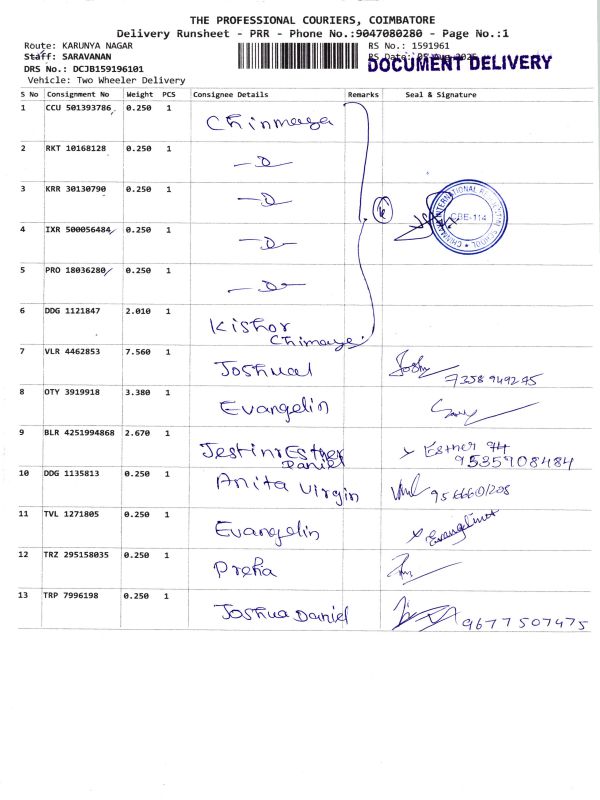 THE PROFESSIONAL COURIERS, COIMBATORE
Delivery Runsheet - PRR - Phone No.:9047080280 - Page No.:1
Route: KARUNYA NAGAR
RS No.: 1591961
Staff: SARAVANAN
RS Date:
DOCUMENT DELIVERY
DRS No.: DCJB159196101
Vehicle: Two Wheeler Delivery
S No Consignment No Weight PCS Consignee Details Remarks Seal & Signature
1 CCU 501393786 0.250 1 Chinmaya
2 RKT 10168128 0.250 1
3 KRR 30130790 0.250 1
CHINMAYA INTERNATIONAL RESIDENTIAL SCHOOL CBE-114
4 IXR 500056484 0.250 1
5 PRO 18036280 0.250 1
6 DDG 1121847 2.010 1 Kishor
Chimaye
7 VLR 4462853 7.560 1 Joshual
8 OTY 3919918 3.380 1 Evangelin
9 BLR 4251994868 2.670 1 Jestin Esther Esther
Daniel 9535908484
10 DDG 1135813 0.250 1 Anita Virgin
11 TVL 1271805 0.250 1 Evangelin
12 TRZ 295158035 0.250 1
13 TRP 7996198 0.250 1 Joshua Daniel 9677507475